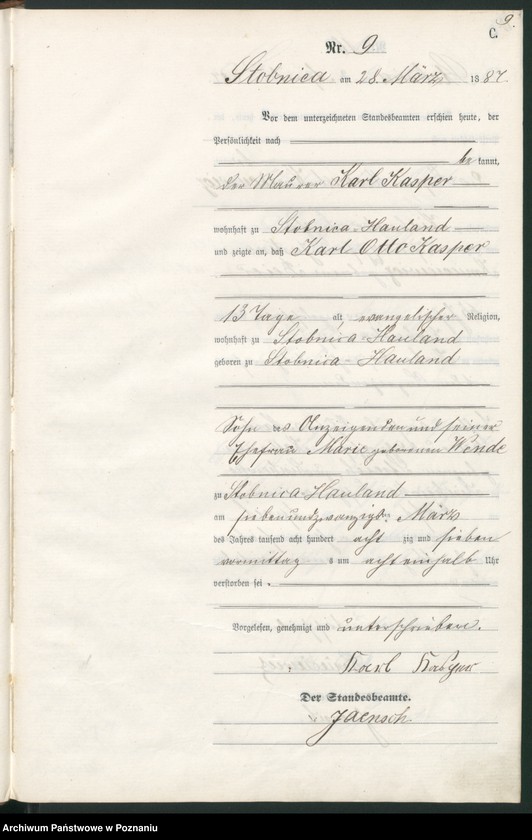 9.
C.
Nr. 9
Stobnica am 28. März 1887.
Vor dem unterzeichneten Standesbeamten erschien heute, der
Persönlichkeit nach
be kannt,
der Maurer Karl Kasper
wohnhaft zu Stobnica-Hauland
und zeigte an, daß Karl Otto Kasper
13 Tage alt, evangelischer Religion,
wohnhaft zu Stobnica-Hauland
geboren zu Stobnica-Hauland
Sohn des Anzeigenden und seiner
Ehefrau Marie geborenen Wende
zu Stobnica Hauland
am siebenundzwanzigsten März
des Jahres tausend acht hundert acht zig und sieben
vormittag s um acht einhalb Uhr
verstorben sei.
Vorgelesen, genehmigt und unterschrieben.
Karl Kasper
Der Standesbeamte.
Jaensch
Archiwum Państwowe w Poznaniu